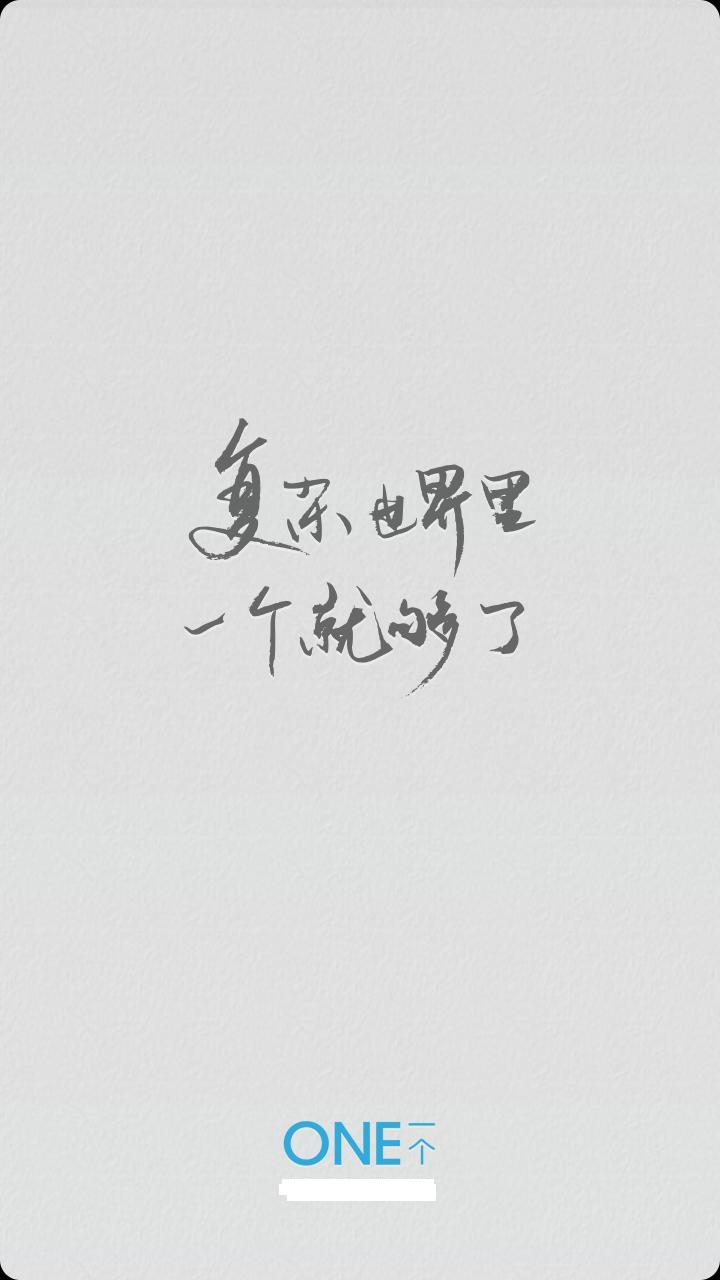 复杂世界里
一个就够了
ONE一个